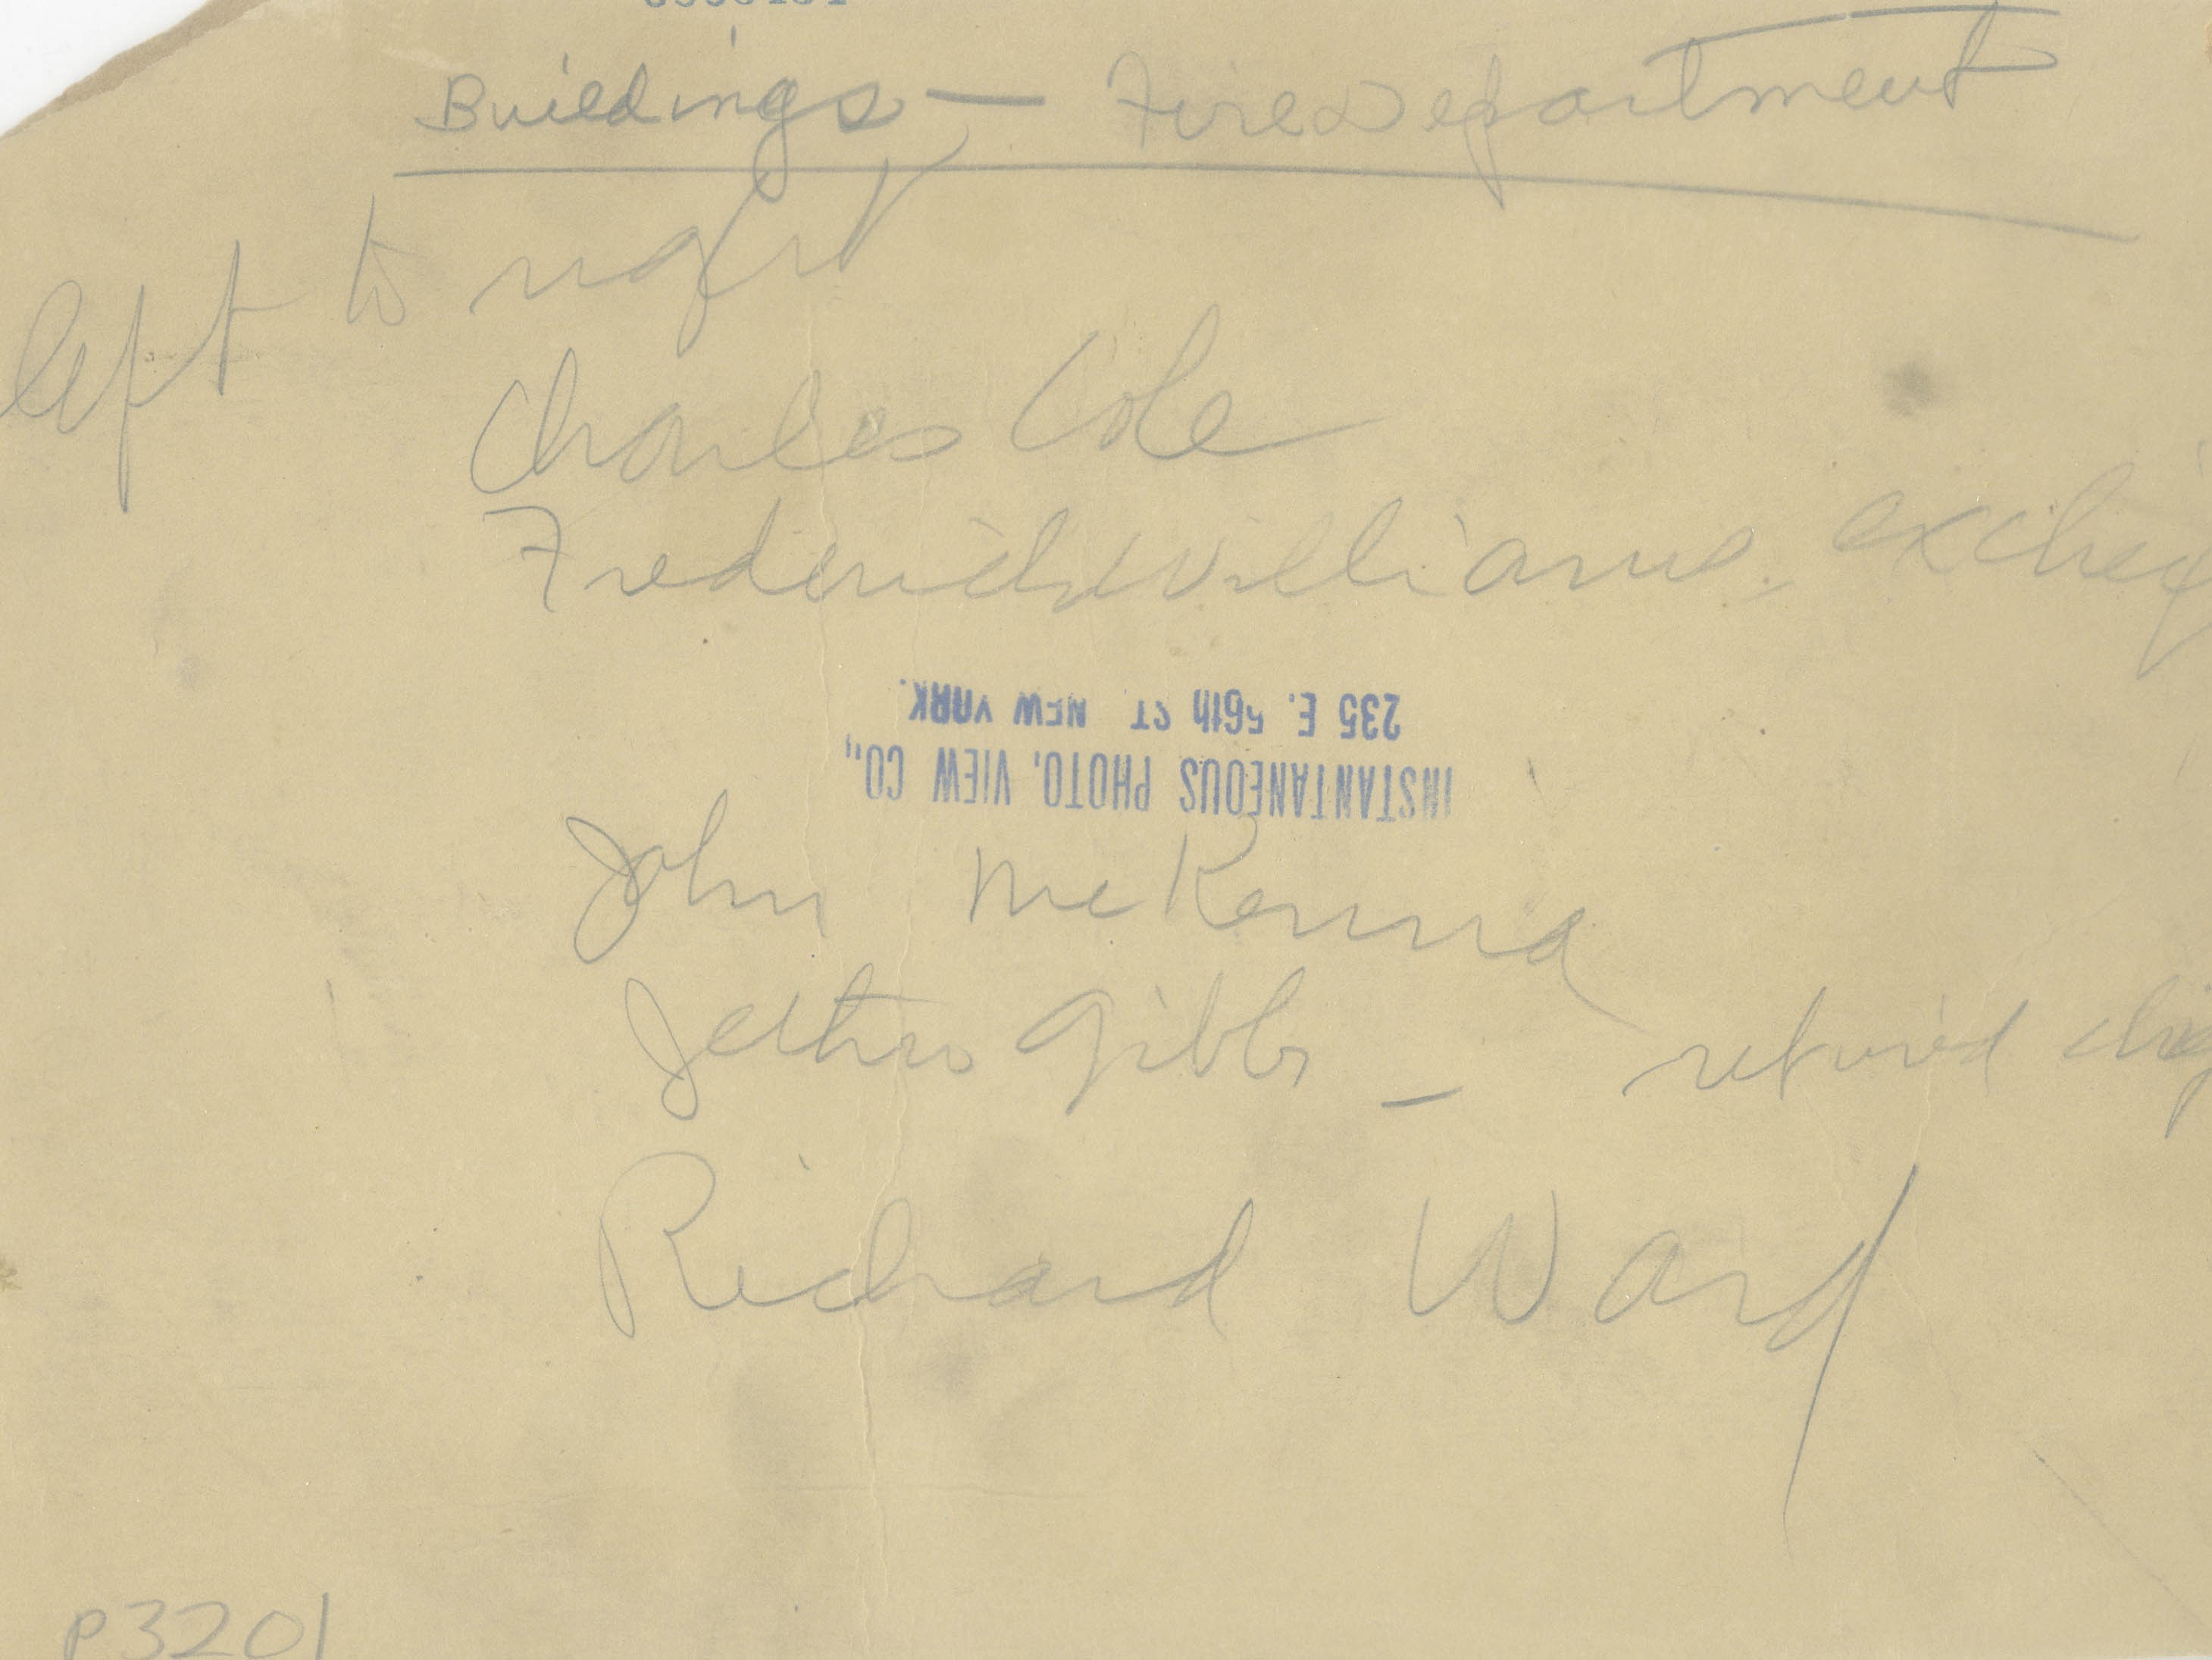 Buildings — Fire Department
left to right
Charles Cole
Frederick Williams. exchief
235 E. 56th ST NEW YORK.
INSTANTANEOUS PHOTO. VIEW CO.,
John McKenna
Jethro Gibbs — retired chief
Richard Ward
P3201